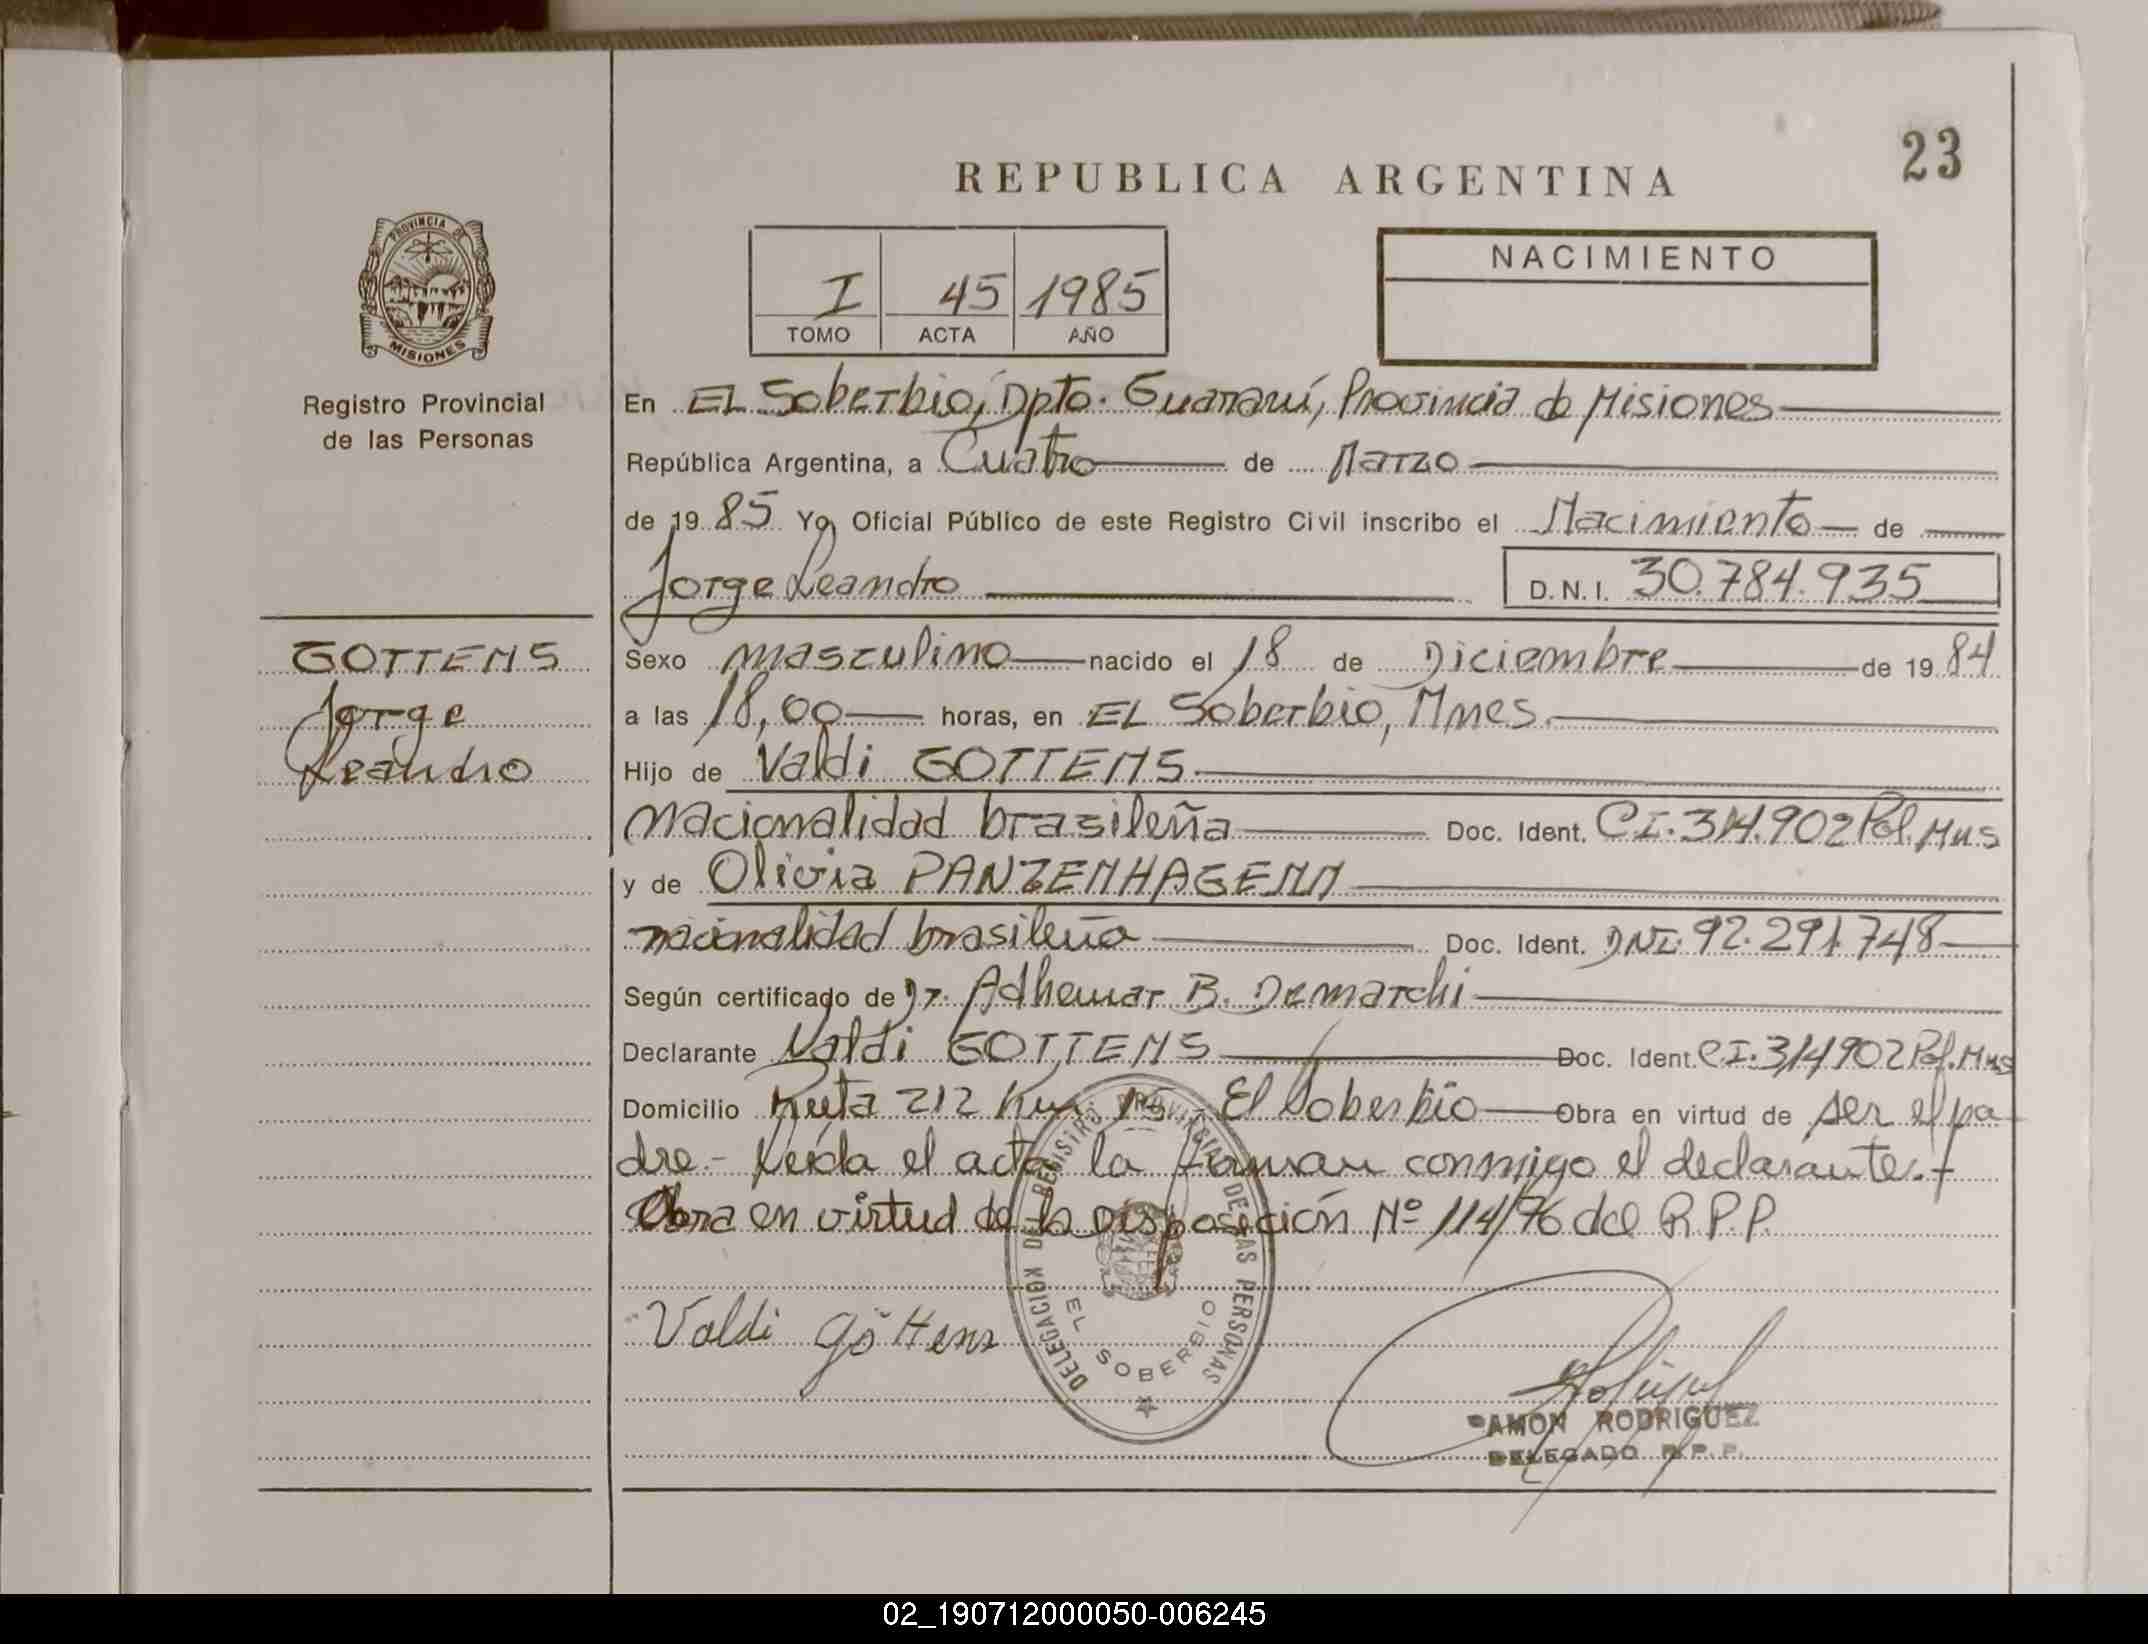 23
REPUBLICA ARGENTINA
PROVINCIA DE
MISIONES
Registro Provincial
de las Personas
I 45 1985
TOMO ACTA AÑO
NACIMIENTO
En EL Soberbio, Dpto. Guaraní, Provincia de Misiones
República Argentina, a Cuatro de Marzo
de 1985 Yo, Oficial Público de este Registro Civil inscribo el Nacimiento de
Jorge Leandro D.N.I. 30.784.935
GOTTENS
Jorge
Leandro
Sexo masculino nacido el 18 de Diciembre de 1984
a las 18,00 horas, en EL Soberbio, Mnes.
Hijo de Valdi GOTTENS
nacionalidad brasileña Doc. Ident. CI. 314.902 Pol. Mns
y de Olivia PANZENHAGENN
nacionalidad brasileña Doc. Ident. DNI. 92.291.748
Según certificado de Dr. Adhemar B. Demarchi
Declarante Valdi GOTTENS Doc. Ident. CI. 314902 Pol. Mns
Domicilio Ruta 212 Km 15 - El Soberbio Obra en virtud de ser el pa
dre.- Leída el acta la firman conmigo el declarante.-
Obra en virtud de la Disposición Nº 114/76 del R.P.P.
DELEGACION DE REGISTRO PROVINCIAL DE LAS PERSONAS
EL SOBERBIO
Valdi Göttens
RAMON RODRIGUEZ
DELEGADO R.P.P.
02_190712000050-006245